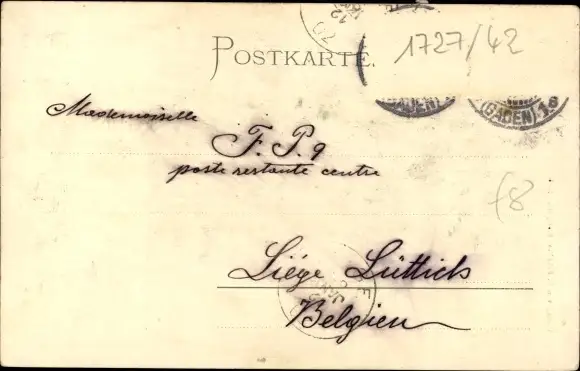 POSTKARTE.
1727/42
(BADEN)
(BADEN) 1 8
Mademoiselle
F. P. 9
poste restante centre
f8
Liége Lüttich
Belgien